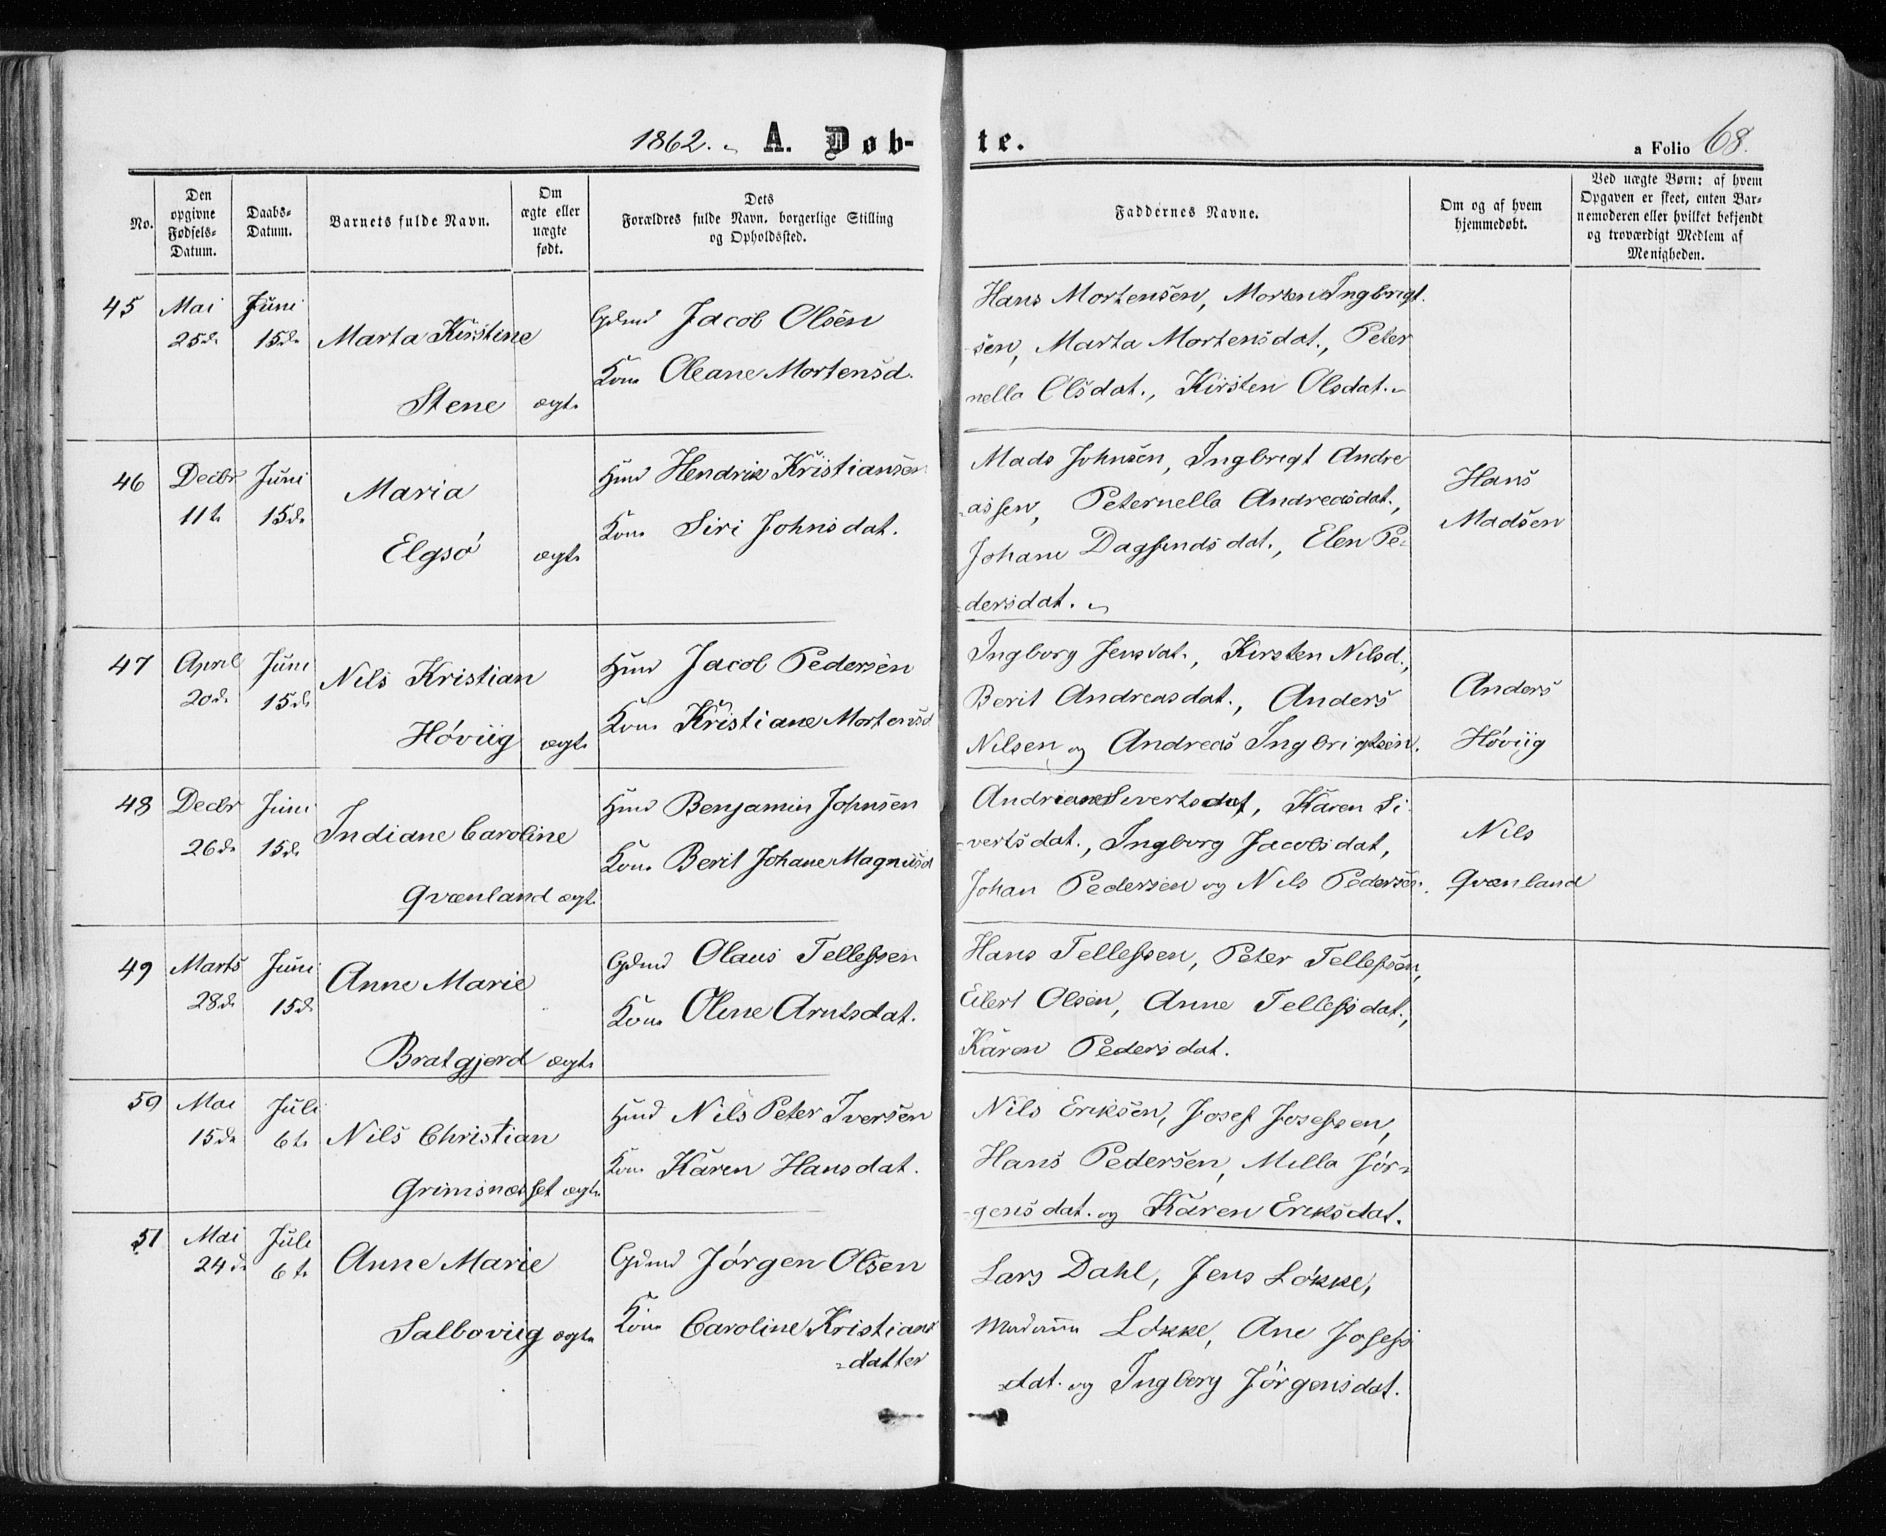 1862. A. Døb-te. a Folio 68.
No.
Den opgivne Fødsels-Datum.
Daabs-Datum.
Barnets fulde Navn.
Om ægte eller uægte født.
Dets Forældres fulde Navn, borgerlige Stilling og Opholdssted.
Faddernes Navne.
Om og af hvem hjemmedøbt.
Ved uægte Børn: af hvem Opgaven er skeet, enten Barnemoderen eller hvilket bekjendt og troværdigt Medlem af Menigheden.
45 Mai Juni
25d. 15d. Marta Kirstine
Stene ægt.
Gdmd Jacob Olsen
Kone Oleane Mortensd.
Hans Mortensen, Morten Ingbrigt-
sen, Marta Mortensdat., Peter
nella Olsdat., Kirsten Olsdat.
46 Decbr Juni
11t. 15d. Maria
Elgsø ægt.
Hmd Hendrik Kristiansen
Kone Siri Johnsdat.
Mads Johnsen, Ingbrigt Andre
assen, Peternella Andreasdat.,
Johane Dagfindsdat., Elen Pe-
dersdat.
Hans
Madsen
47 April Juni
20d. 15d. Nils Kristian
Høviig ægt.
Hmd Jacob Pedersen
Kone Kristiane Mortensd
Ingborg Jensdat., Kirsten Nilsd.,
Berit Andreasdat., Anders
Nilsen og Andreas Ingbrigtsen.
Anders
Høviig
48 Decbr Juni
26d. 15d. Indiane Caroline
Qvænland ægt.
Hmd Benjamin Johnsen
Kone Berit Johane Magnusd
Andriane Sivertsdat, Karen Si-
vertsdat., Ingborg Jacobsdat,
Johan Pedersen og Nils Pedersen.
Nils
Qvænland
49 Marts Juni
28d. 15d Anne Marie
Bratgjerd ægt.
Gdmd Olaus Tellefsen
Kone Olene Arntsdat.
Hans Tellefsen, Peter Tellefsen,
Eilert Olsen, Anne Tellefsdat.,
Karen Pedersdat.
50 Mai Juli
15d. 6t. Nils Christian
Grimsnæsset ægt.
Hmd Nils Peter Iversen
Kone Karen Hansdat.
Nils Eriksen, Josef Josefsen,
Hans Pedersen, Milla Jør-
gensdat. og Karen Eriksdat.
51 Mai Juli
24d. 6t. Anne Marie
Salboviig ægt.
Gdmd Jørgen Olsen
Kone Caroline Kristians
-datter
Lars Dahl, Jens Løkke,
Madame Løkke, Ane Josefs
-dat. og Ingborg Jørgensdat.